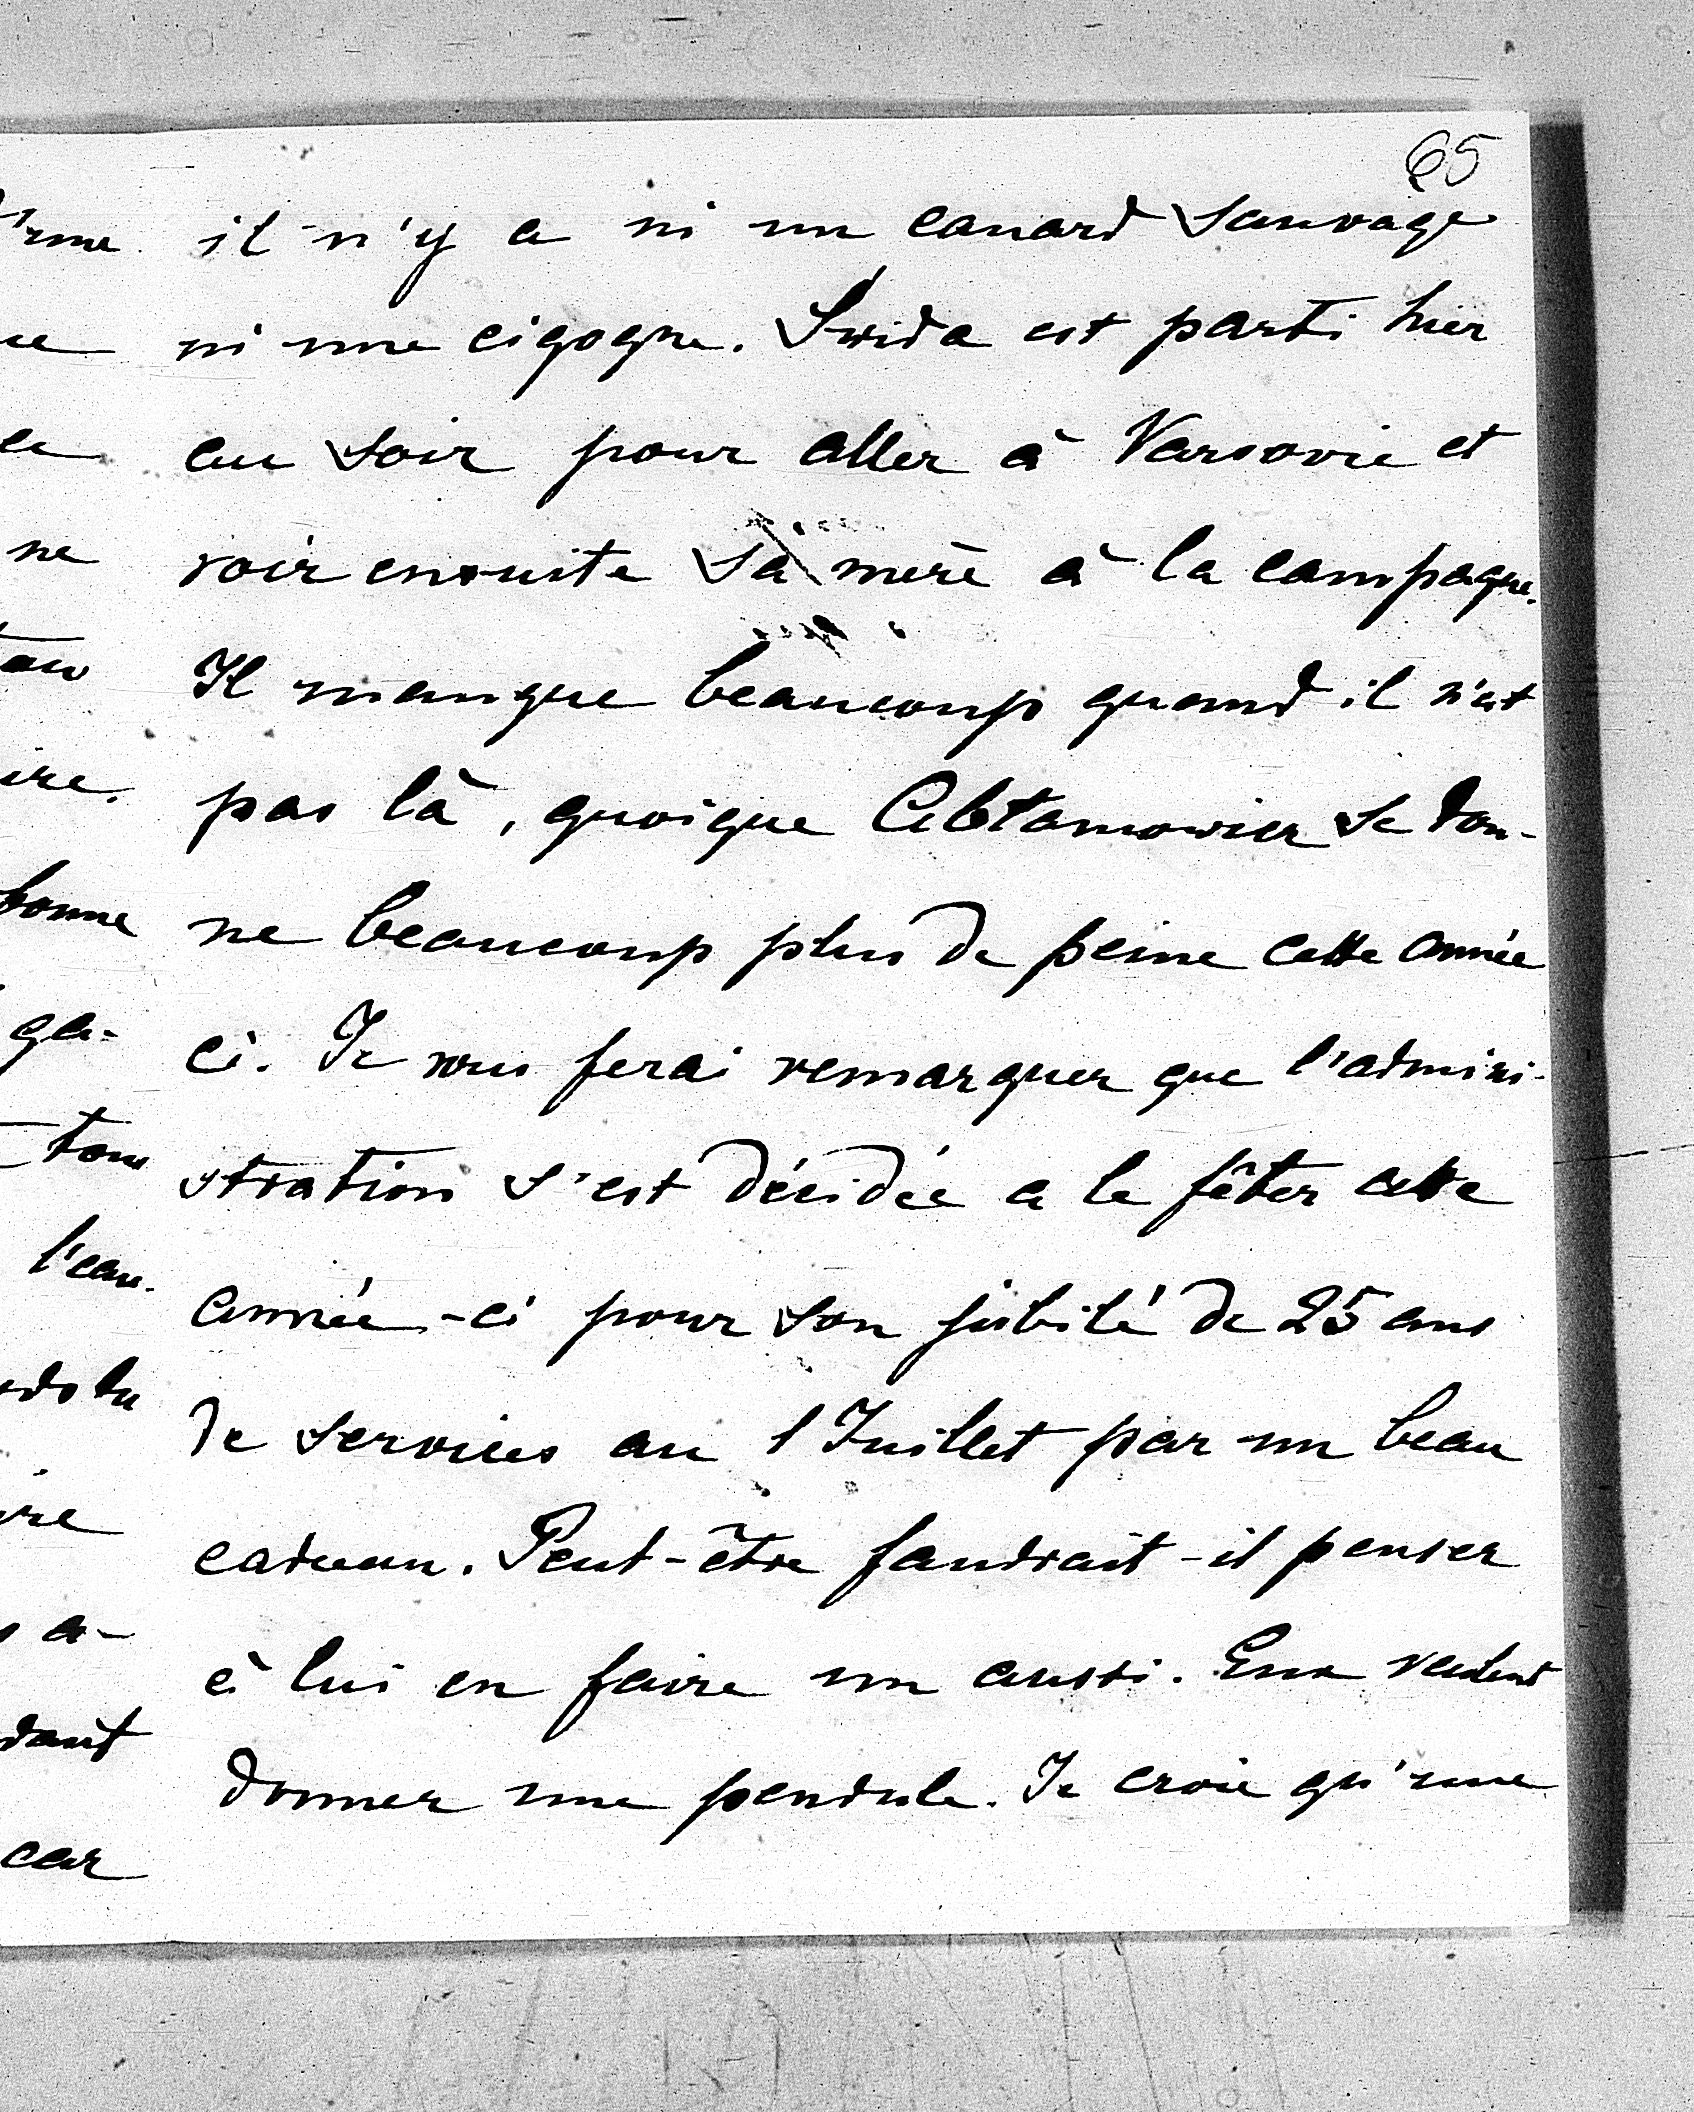 65
il n'y a ni un canard sauvage
ni une cigogne. Swida est parti hier
au soir pour aller à Varsovie et
voir ensuite sa mère à la campagne.
Il manque beaucoup quand il n'est
pas là, quoique se don-
ne beaucoup plus de peine cette année
ci. Je vous ferai remarquer que l'admini-
stration s'est décidée a le fêter cette
année-ci pour son jubilé de 25 ans
de services au 1 Juillet par un beau
cadeau. Peut-être faudrait-il penser
à lui en faire un aussi. Eux veulent
donner une pendule. Je crois qu'une
'une
ne
bonne
tous
l'eau.
car